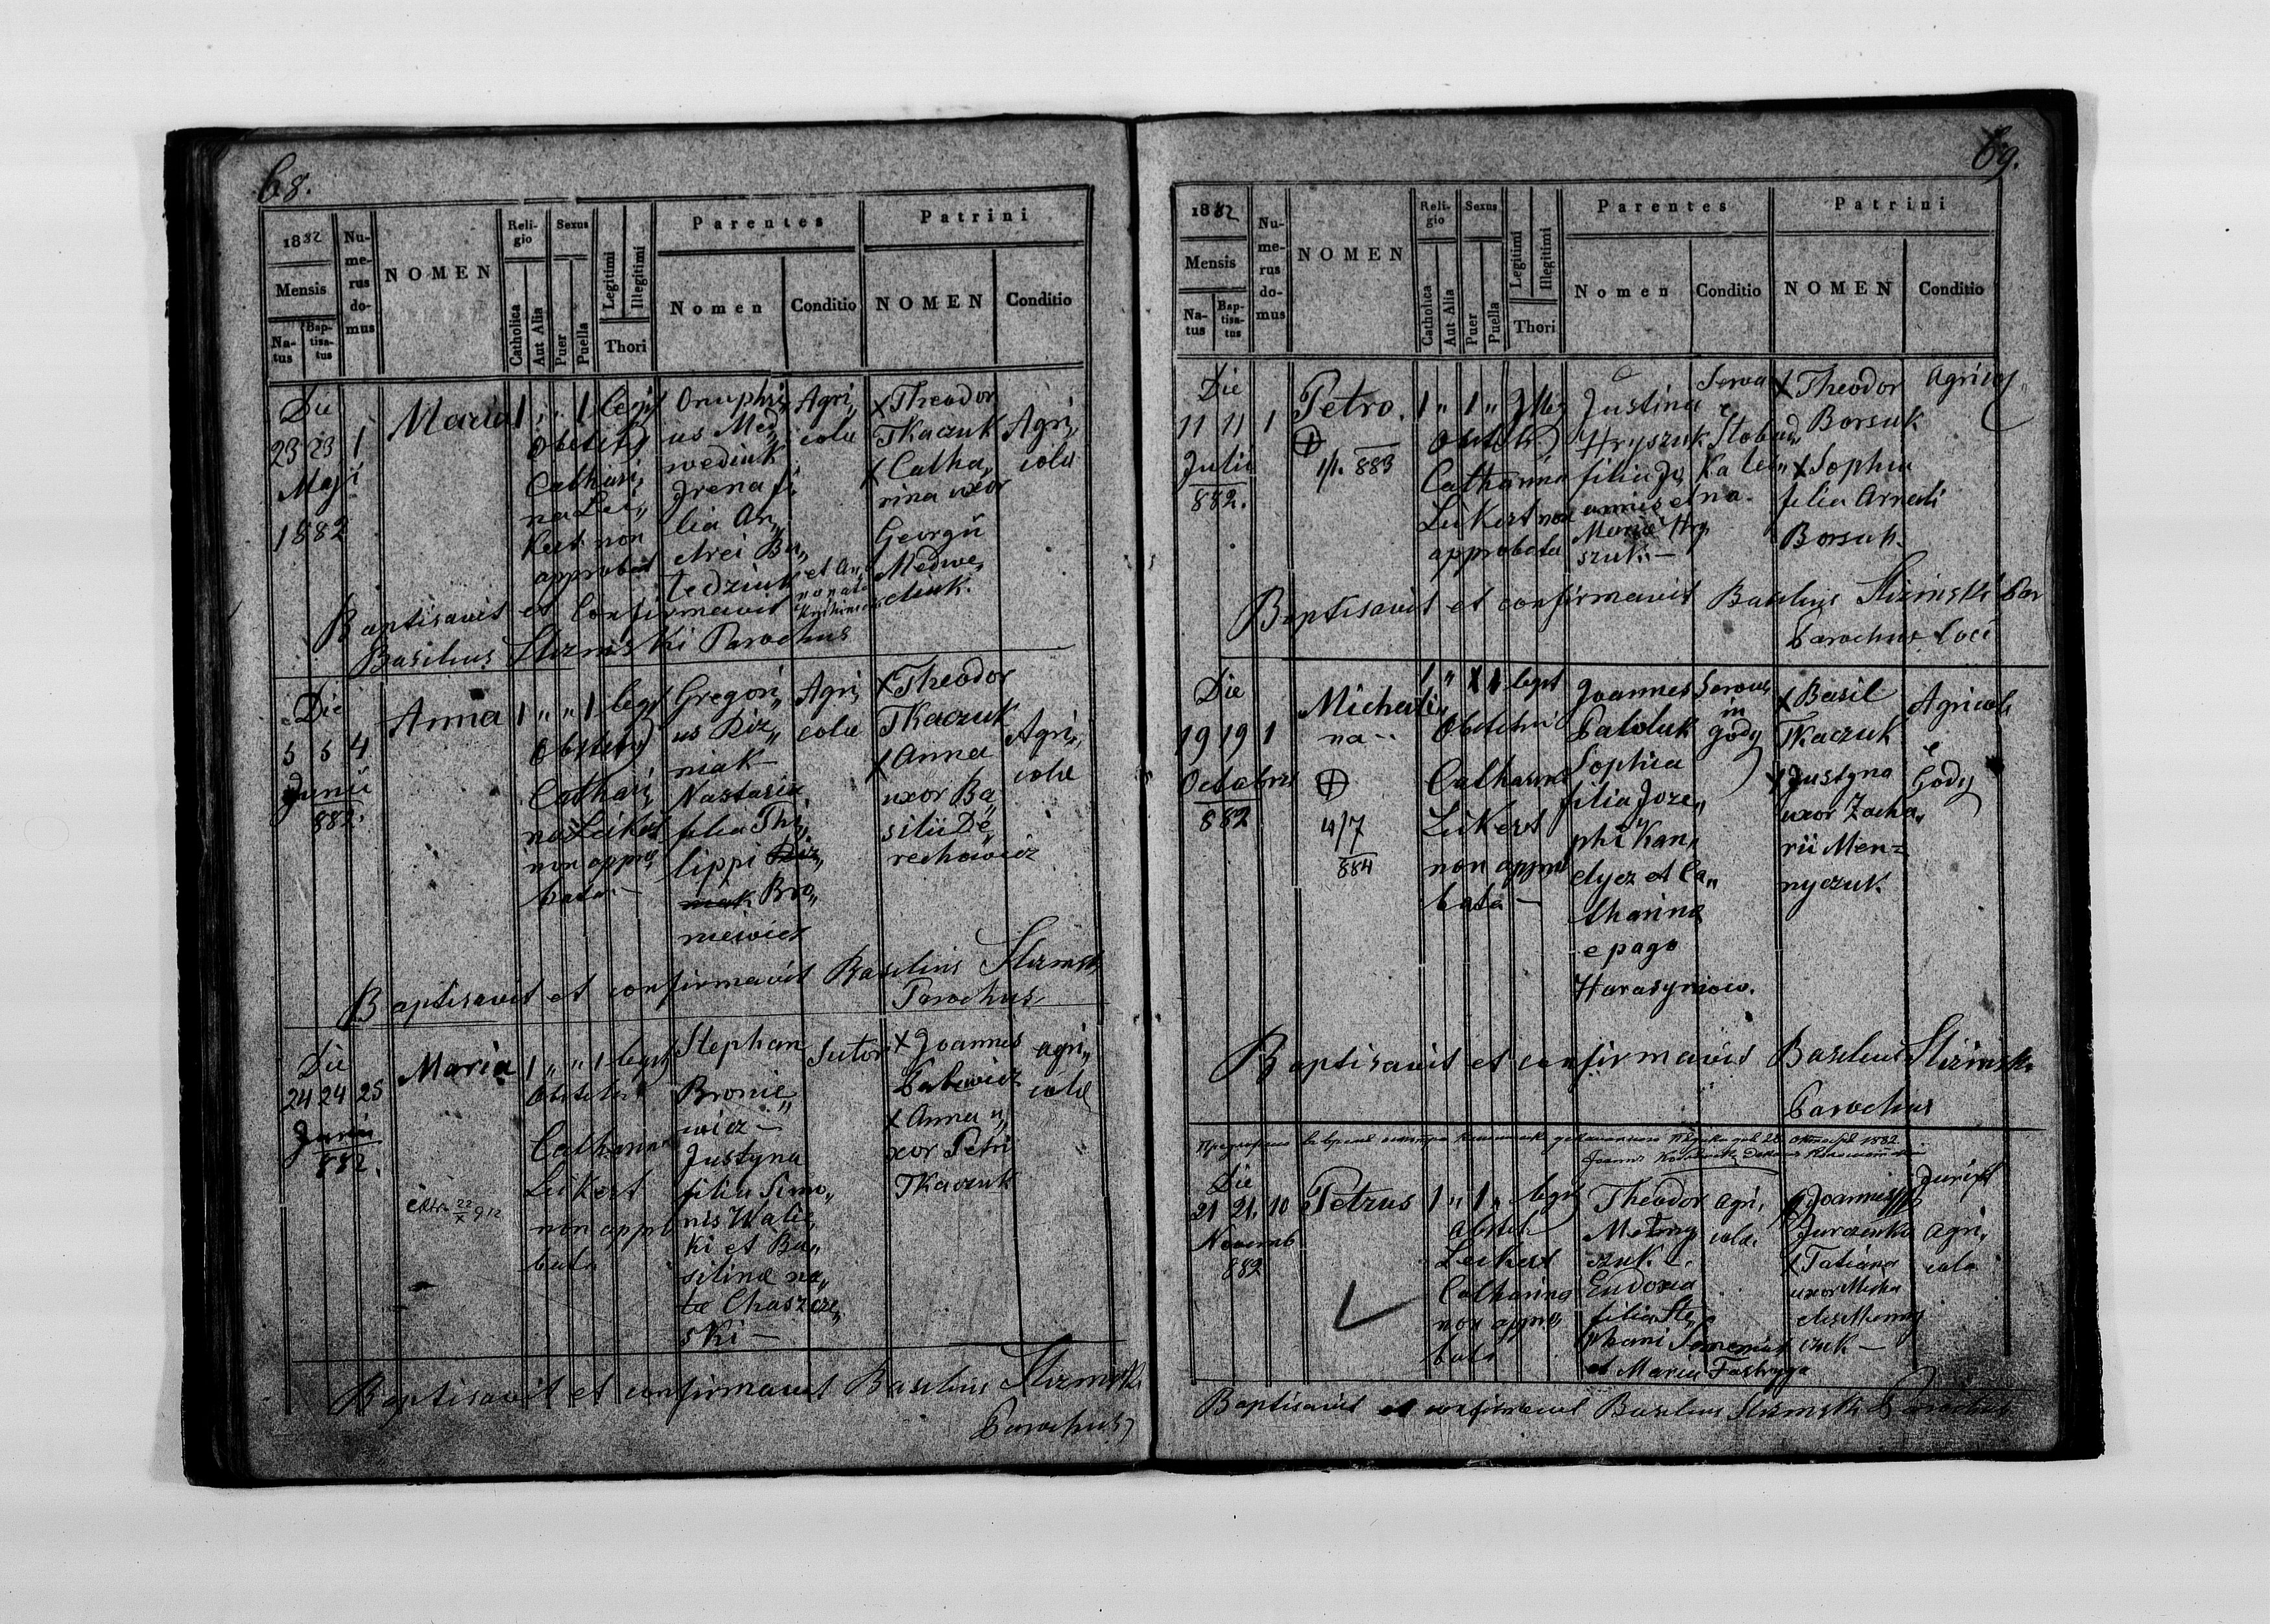 68.
1882
Mensis
Na-
tus
Bap-
tisa-
tus
Nu-
me-
rus
do-
mus
NOMEN
Reli-
gio
Catholica
Aut Alia
Sexus
Puer
Puella
Legitimi
Illegitimi
Thori
Parentes
Nomen
Conditio
Patrini
NOMEN
Conditio
Die
23 23 1
Maji
1882
Maria
1 " " 1 legit
Obstetr
Cathari,,
na Lei,,
kert non
approbat
Onuphri,,
us Med,,
wediuk
Irena fi,,
lia An,,
drei Bu,,
tedziuk et An,,
Agri,,
colae
x Theodor
Tkaczuk
x Catha,,
rina uxor
Georgii
Medwe,,
diuk.
Agri,,
colae
Baptisavit et confirmavit
Basilius Strzmski Parochus
Die
5 5 4
Junii
882.
Anna
1 " " 1 legit
Obstetr
Cathari,,
na Leikert
non appro,,
bata –
Gregori,,
us Diz,,
niak –
Nastasia
filia Phi,,
lippi Diz,,
niak Bro,,
niewicz
Agri,,
colae
x Theodor
Tkaczuk
x Anna
uxor Ba,,
silii De,,
rechowicz
Agri,,
colae
Baptisavit et confirmavit Basilius Strzmski
Parochus
Die
24 24 25
Junii
882.
Maria
22/X 912
1 " " 1 legit
Obstetr
Catharina
Leikert
non appro
bata
Stephan
Bronie,,
wicz –
Justyna
filia Simo,,
nis Walic,,
ki et Ba,,
silinae na,,
tae Chaszcze,,
ski –
Sutor
x Joannes
x Anna u,,
xor Petri
Tkaczuk
agri,,
colae
Baptisavit et confirmavit Basilius Strzmski
Parochus
69.
1882
Mensis
Na-
tus
Bap-
tisa-
tus
Nu-
me-
rus
do-
mus
NOMEN
Reli-
gio
Catholica
Aut Alia
Sexus
Puer
Puella
Legitimi
Illegitimi
Thori
Parentes
Nomen
Conditio
Patrini
NOMEN
Conditio
Die
11 11 1
Julii
882.
Petro.
1/1. 883
1 " 1 " Illeg
Obstetr
Catharina
Leikert non
approbata
Justina
Hryszuk
filia Jo,,
annis et
Maria Hry
szuk –
Serva
e
x Theodor
Borsuk
x Sophia
filia
Borsuk.
Agricol
Baptisavit et confirmavit Basilius Strzmski
Parochus Loci
Die
19 19 1
Octobris
882
Michali,,
na
4/7
884
1 " 1 legit
Obstetri
Catharina
Leikert
non appro
bata –
Joannes
Paloluk
Sophia
filia Joze,,
phi Kan,,
dycz et Ca,,
tharina
e pago
Harasymow.
Servus
in
Gody
x Basil
Tkaczuk
x Justyna
uxor Zacha,,
rii Men-
nyczuk.
Agricola
e
Gody
Baptisavit et confirmavit Basilius Strzmski
Parochus
1882
Die
21 21. 10
Novemb
882
Petrus
1 " 1 " legit
Obstetr
Leikert
Catharina
non appro,,
bata
Theodor
Melny
czuk.
Eudoxia
filia Ste,,
phani Semeniuk
et Maria Fastryga
agri,,
colae
Joannes
Jurczenko
x Tatiana
uxor Micha
elis Menny
czuk –
agri,,
cola
Baptisavit et confirmavit Basilius Strzmski Parochus